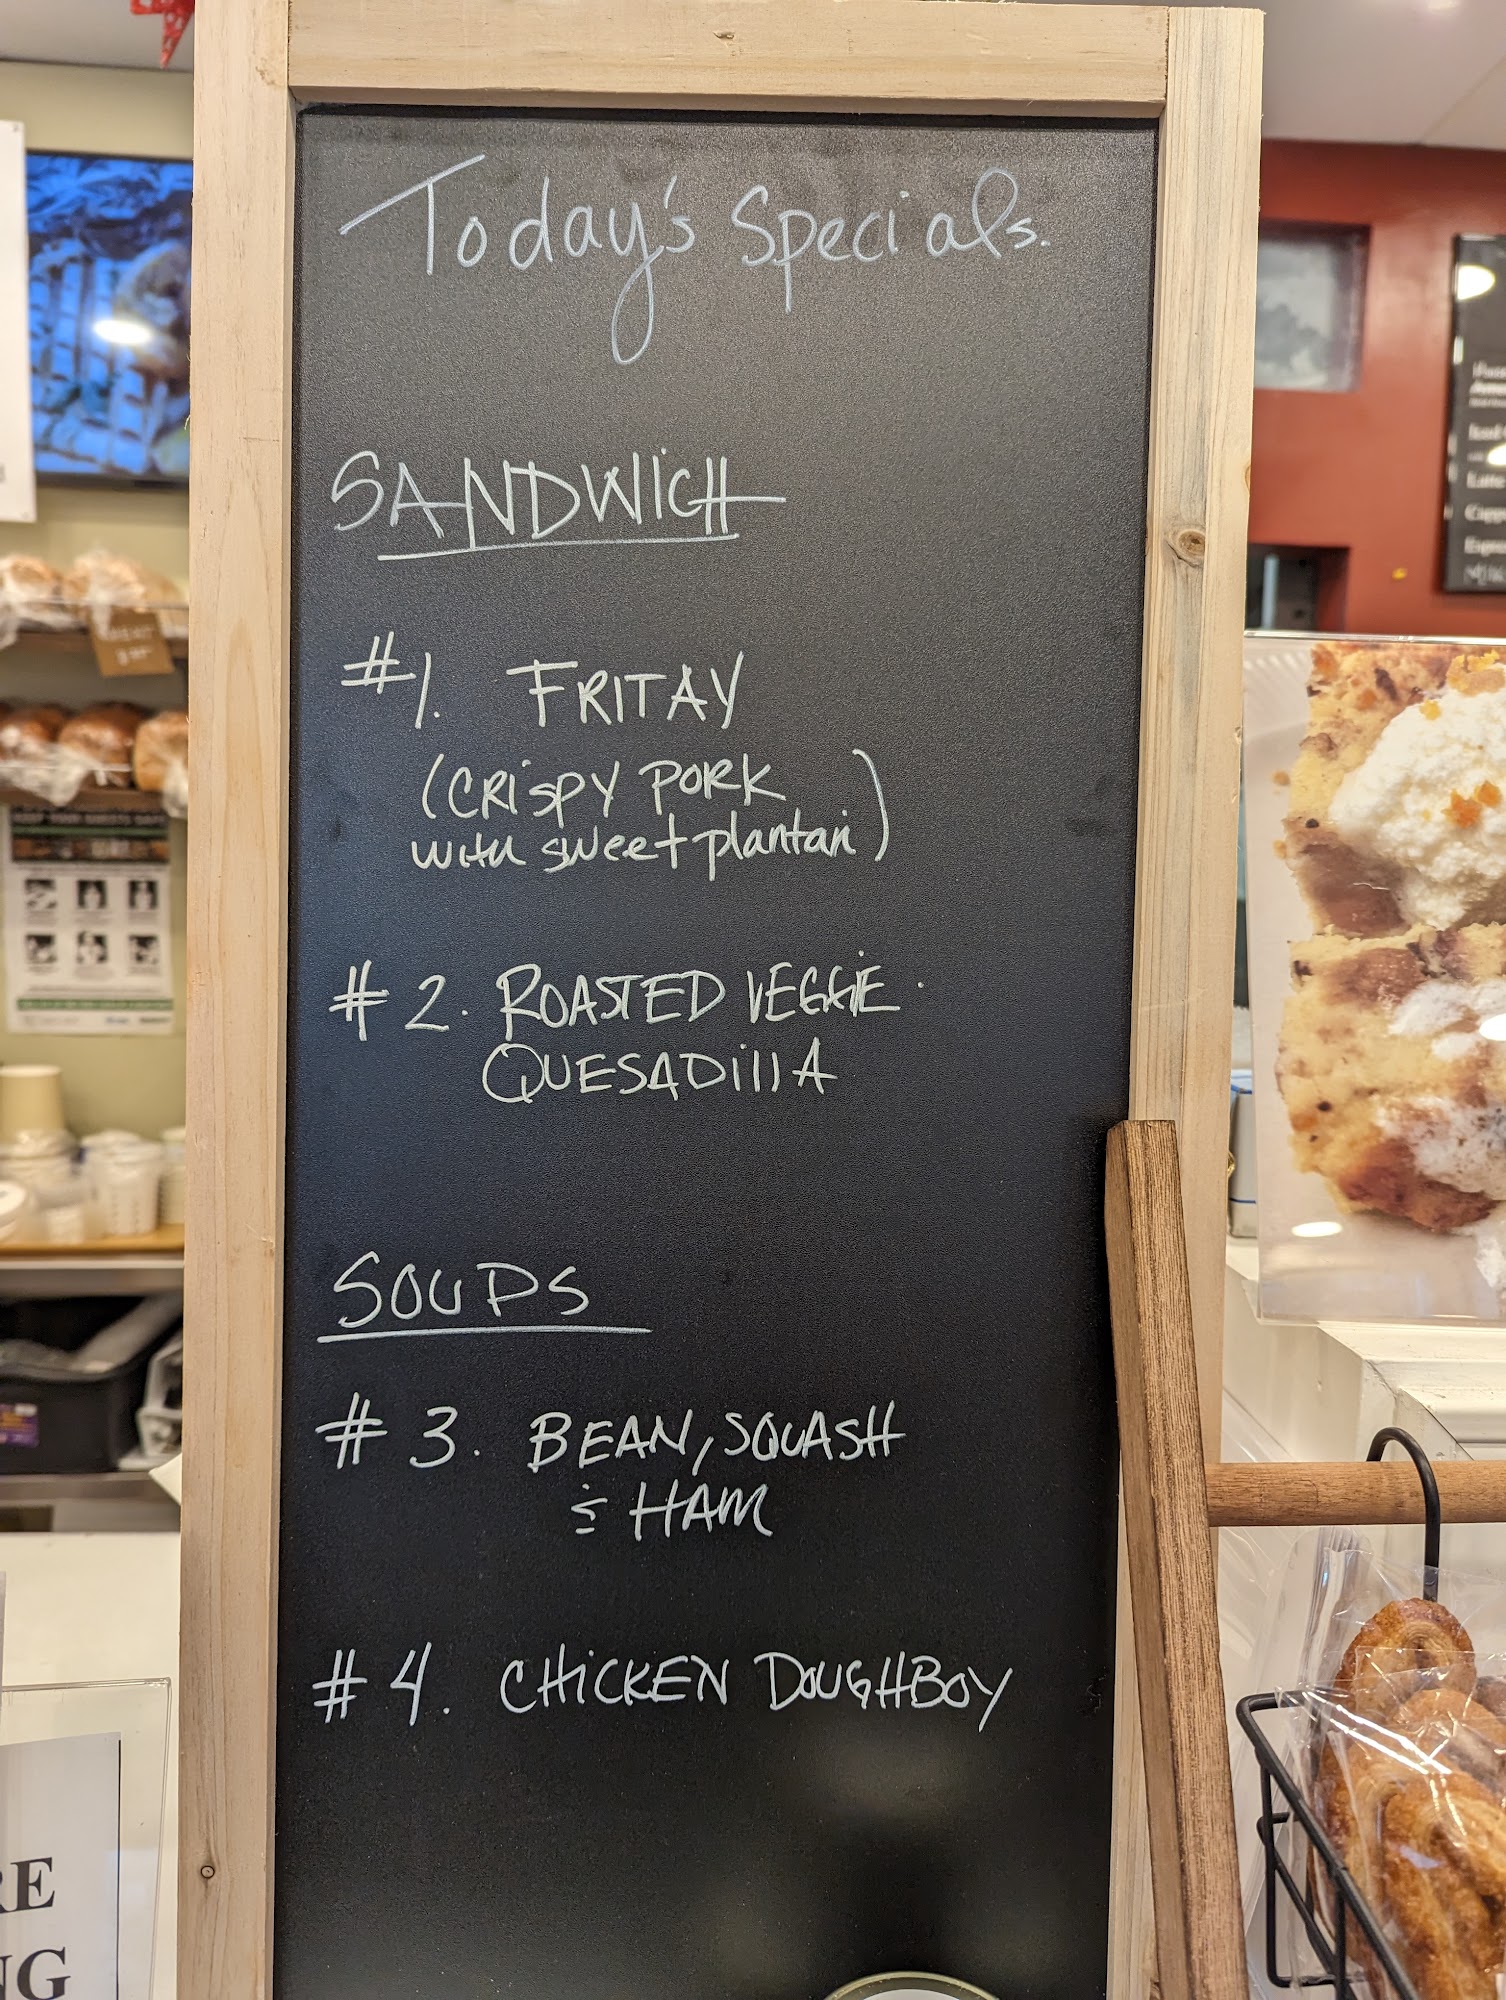 Today's Specials.
SANDWICH
#1. FRITAY
(CRISPY PORK
with sweet plantain)
#2. ROASTED VEGGIE.
QUESADILLA
SOUPS
#3. BEAN, SQUASH
& HAM
#4. CHICKEN DOUGHBOY
RE
NG
Latte